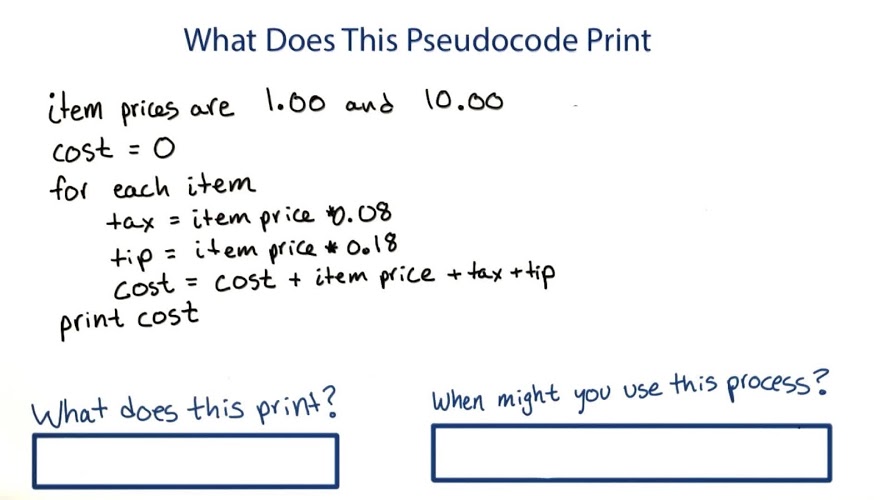 What Does This Pseudocode Print
item prices are 1.00 and 10.00
cost = 0
for each item
tax = item price * 0.08
tip = item price * 0.18
cost = cost + item price + tax + tip
print cost
What does this print?
When might you use this process?